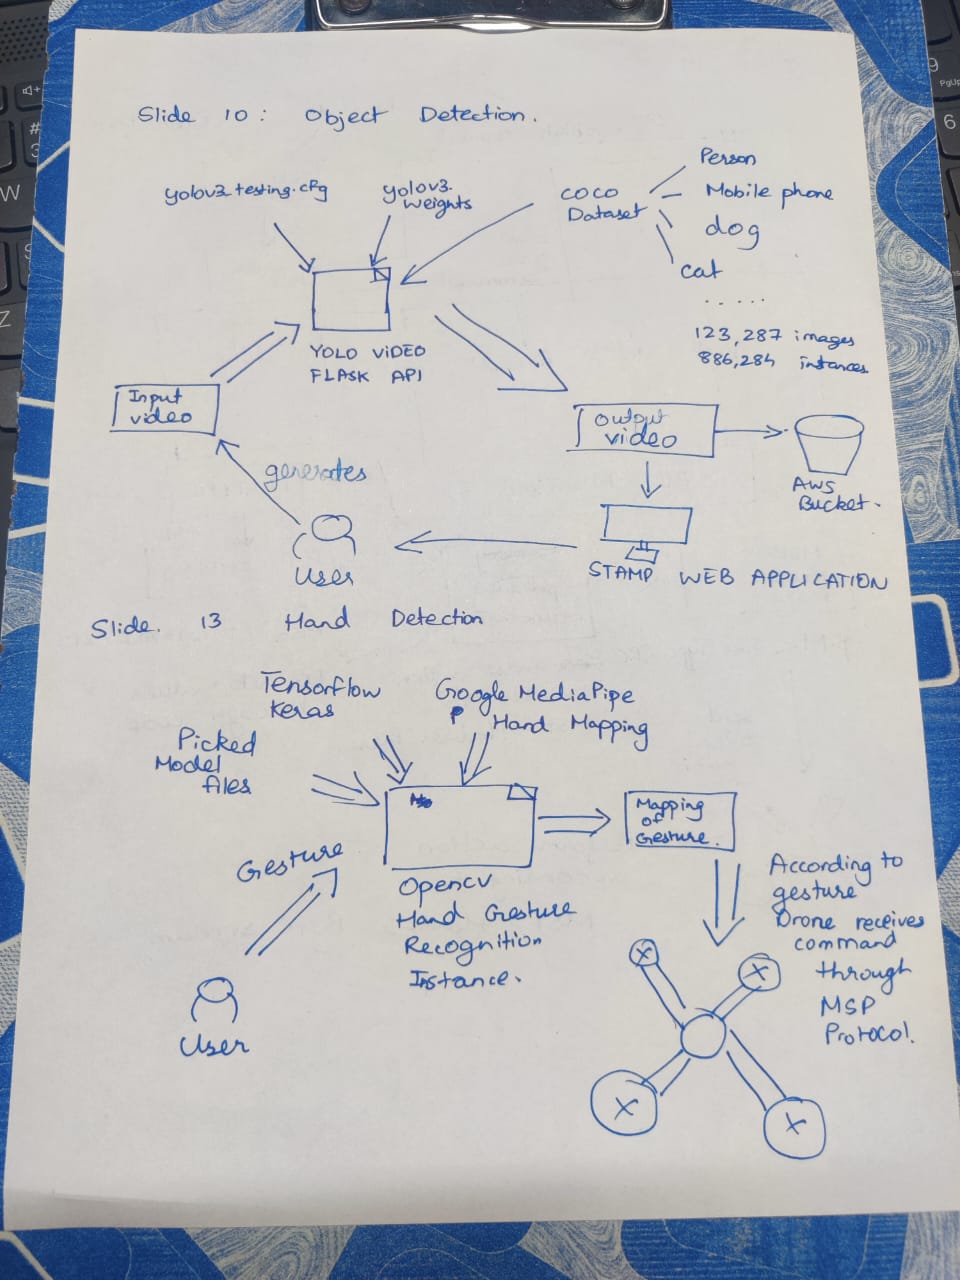 Slide 10 : Object Detection.
yolov3_testing.cfg
yolov3.
weights
COCO
Dataset
Person
Mobile phone
dog
cat
. . . . .
123,287 images
886,284 instances
YOLO VIDEO
FLASK API
Input
video
output
video
generates
AWS
Bucket.
User
STAMP WEB APPLICATION
Slide. 13 Hand Detection
Tensorflow
Keras
Google MediaPipe
Hand Mapping
Picked
Model
files
Mapping
of
Gesture.
Gesture
Opencv
Hand Gesture
Recognition
Instance.
According to
gesture
Drone receives
command
through
MSP
Protocol.
User
X
X
X
X